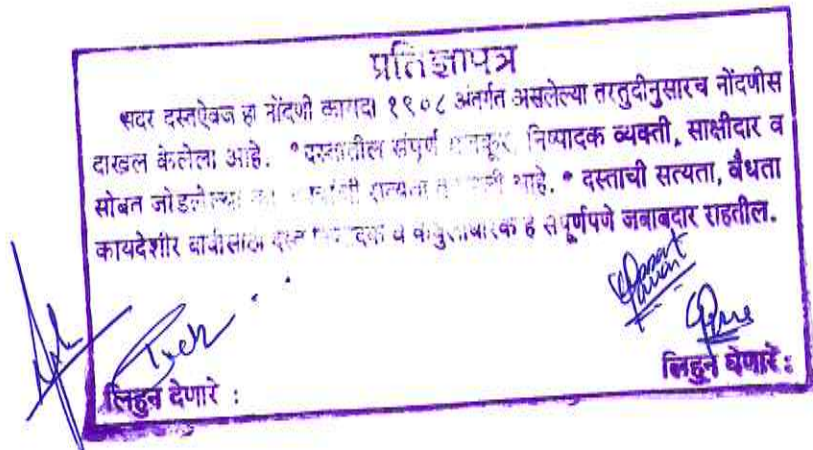 प्रतिज्ञापत्र
सदर दस्तऐवज हा नोंदणी कायदा १९०८ अंतर्गत असलेल्या तरतुदीनुसारच नोंदणीस
दाखल केलेला आहे. * दस्तातील संपूर्ण मजकूर, निष्पादक व्यक्ती, साक्षीदार व
सोबत जोडलेल्या सत्यता आहे. * दस्ताची सत्यता, वैधता
कायदेशीर बाबीसाठी दस्त व कबुलीधारक हे संपूर्णपणे जबाबदार राहतील.
लिहून देणारे :
लिहून घेणारे :